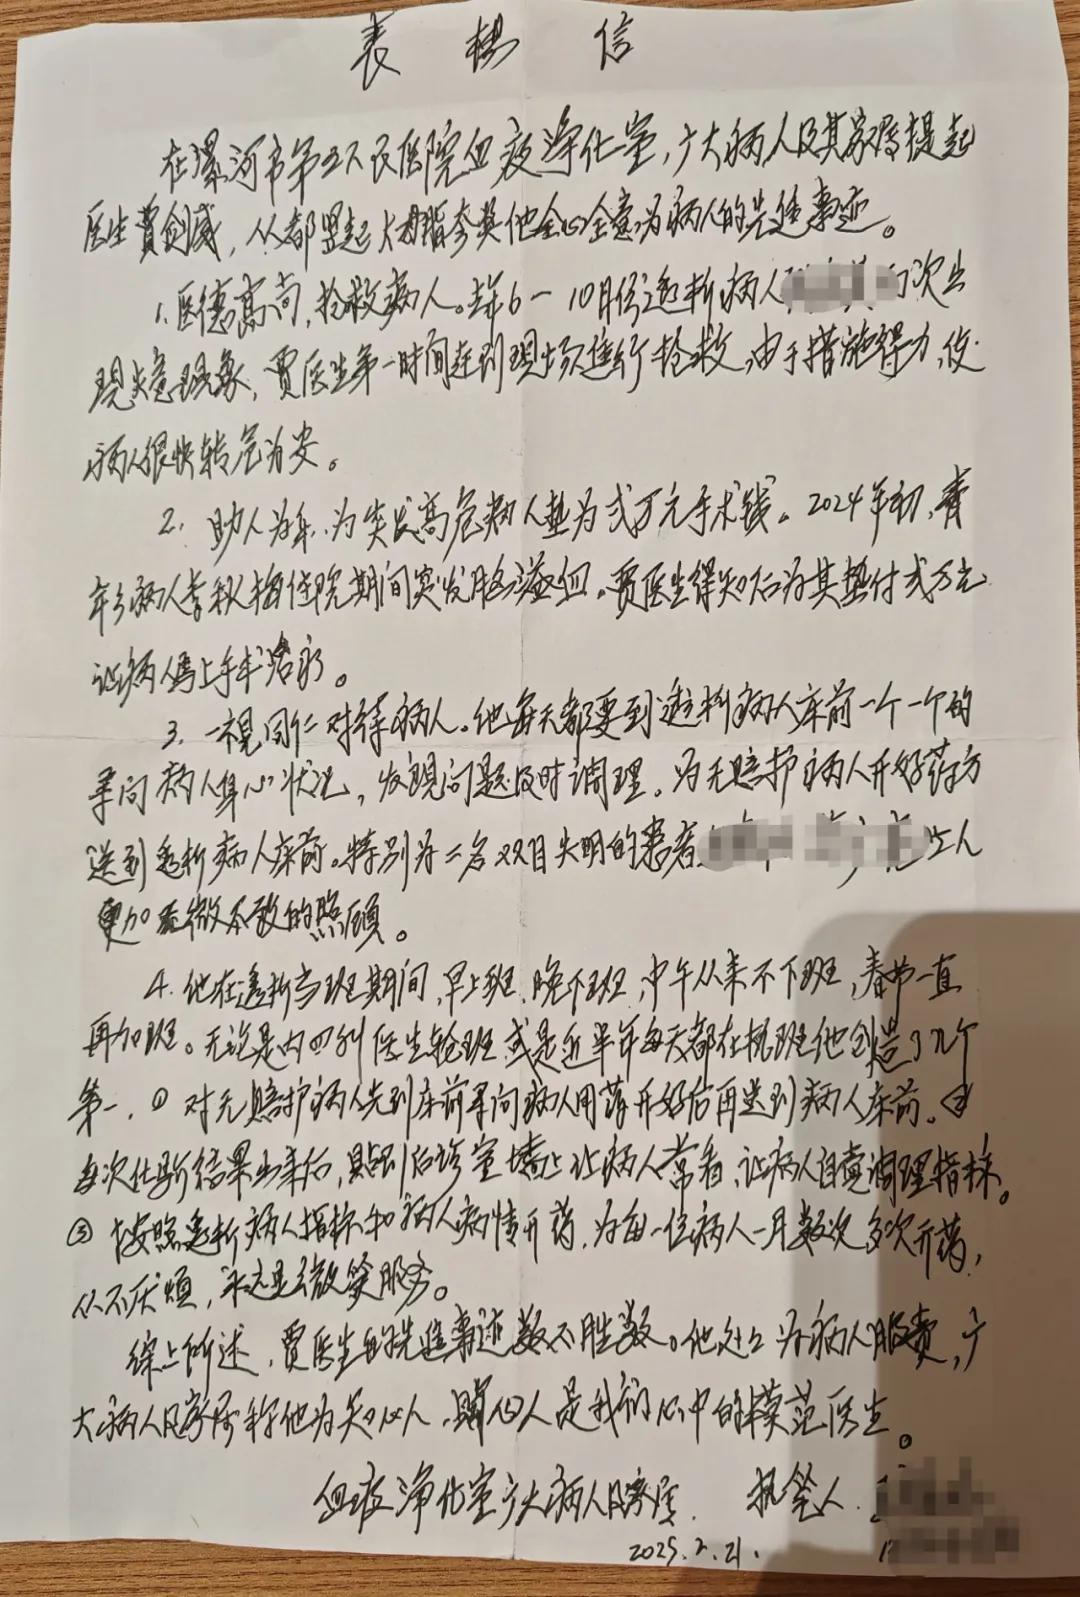 表扬信
在漯河市第五人民医院血液净化室，广大病人及其家属提起
医生贾剑威，从都竖起大拇指夸奖他全心全意为病人的先进事迹。
1. 医德高尚，抢救病人。去年6—10月份透析病人 次出
现失意现象，贾医生第一时间赶到现场进行抢救，由于措施得力，使
病人很快转危为安。
2. 助人为乐，为突发高危病人垫为弍万元手术钱。2024年初，青
年病人李秋梅住院期间突发脑溢血。贾医生得知后为其垫付弍万元
让病人马上手术治疗。
3. 一视同仁对待病人。他每天都要到透析病人床前一个一个的
寻问病人身心状况，发现问题及时调理。为无赔护病人开好药方
送到透析病人床前。特别为二名双目失明的患者 人
更加无微不致的照顾。
4. 他在透析当班期间，早上班，晚下班，中午从来不下班，春节一直
再加班。无论是内四科医生轮班或是近半年每天都在机班他创造了几个
第一，①对无赔护病人先到床前寻问病人用药开好后再送到病人床前。②
每次化验结果出来后，贴到后诊室墙上让病人常看，让病人自觉调理指标。
③按照透析病人指标和病人病情开药，为每一位病人一月数次多次开药，
从不厌烦，永远是微笑服务。
综上所述，贾医生的先进事迹数不胜数。他处处为病人服务，广
大病人及家属称他为知心人，暖心人是我们心中的模范医生。
血液净化室广大病人及家属 执笔人
2025.2.21.